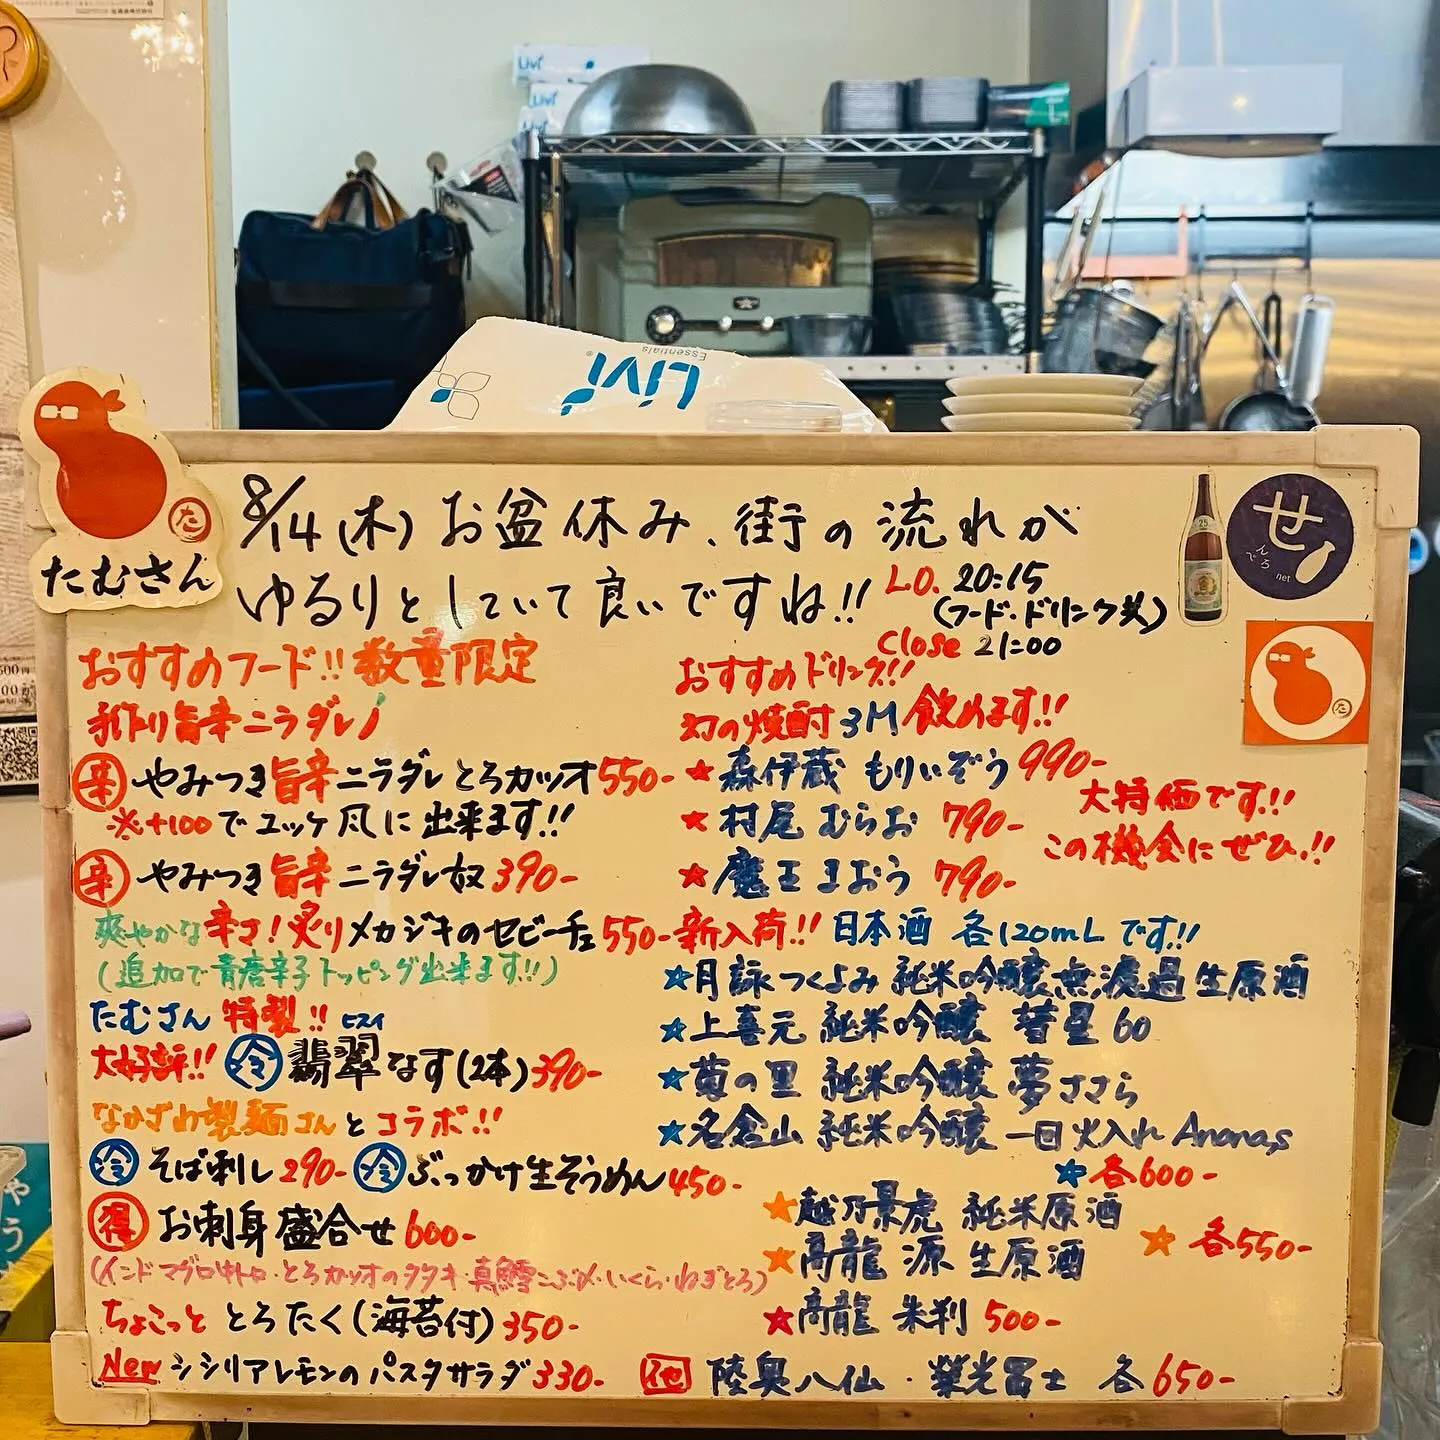 Livi
Livi
Livi
Essentials
たむさん
た
8/14(木)お盆休み、街の流れが
ゆるりとしていて良いですね!!
L.O. 20:15
(フード・ドリンク共)
Close 21:00
せ
んべろ
net
た
おすすめフード!!数量限定
手作り旨辛ニラダレ!
辛 やみつき旨辛ニラダレとろカツオ550-
※+100でユッケ風に出来ます!!
辛 やみつき旨辛ニラダレ奴390-
爽やかな辛さ!炙りメカジキのセビーチェ550-
(追加で青唐辛子トッピング出来ます!!)
たむさん特製!!
ヒスイ
大好評!! 冷 翡翠なす(2本)390-
なかざわ製麺さんとコラボ!!
冷 そば刺し290- 冷 ぶっかけ生そうめん450-
得 お刺身盛合せ600-
(インドマグロ中トロ・とろカツオのタタキ・真鱈こぶ〆・いくら・ねぎとろ)
ちょこっと とろたく(海苔付)350-
New シシリアレモンのパスタサラダ330-
おすすめドリンク!!
幻の焼酎3M飲めます!!
★森伊蔵 もりいぞう990-
★村尾 むらお 790-
★魔王 まおう 790-
大特価です!!
この機会にぜひ!!
新入荷!! 日本酒 各120mLです!!
★月詠つくよみ 純米吟醸無濾過生原酒
★上喜元 純米吟醸 彗星60
★菊の里 純米吟醸 夢ささら
★名倉山 純米吟醸 一回火入れ Ananas
★各600-
★越乃景虎 純米原酒
★高龍 源 生原酒
★各550-
★高龍 朱判 500-
他 陸奥八仙・榮光冨士 各650-